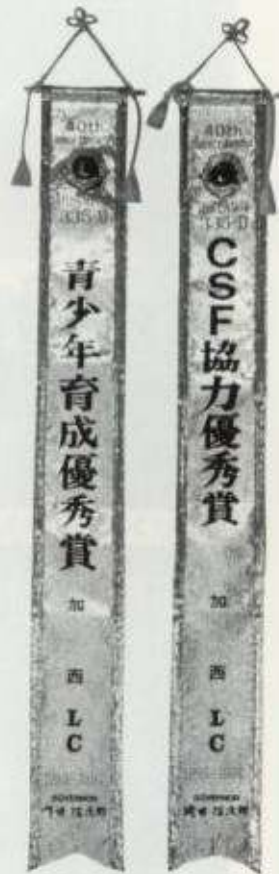 40th
335-D
青少年育成優秀賞
加西LC
GOVERNOR
40th
335-D
CSF協力優秀賞
加西LC
GOVERNOR